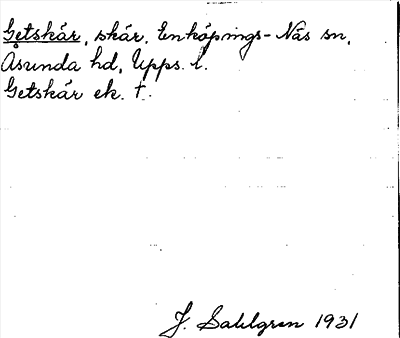 Getskär, skär, Enköpings-Näs sn,
Åsunda hd, Upps. l.
Getskär ek. †.
J. Sahlgren 1931